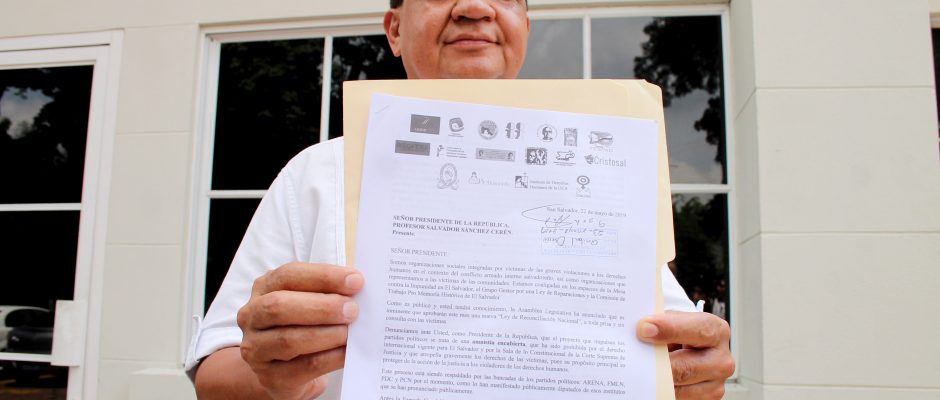 Cristosal
Instituto de Derechos
Humanos de la UCA
San Salvador, 22 de mayo de 2019
SEÑOR PRESIDENTE DE LA REPÚBLICA,
PROFESOR SALVADOR SÁNCHEZ CERÉN.
Presente.
SEÑOR PRESIDENTE
Somos organizaciones sociales integradas por víctimas de las graves violaciones a los derechos
humanos en el contexto del conflicto armado interno salvadoreño, así como organizaciones que
representamos a las víctimas de las comunidades. Estamos coaligadas en los espacios de la Mesa
contra la Impunidad en El Salvador, el Grupo Gestor por una Ley de Reparaciones y la Comisión de
Trabajo Pro Memoria Histórica de El Salvador
Como es público y usted tendrá conocimiento, la Asamblea Legislativa ha anunciado que es
inminente que aprobarán este mes una nueva "Ley de Reconciliación Nacional", a toda prisa y sin
consulta con las víctimas.
Denunciamos ante Usted, como Presidente de la República, que el proyecto que impulsan los
partidos políticos se trata de una amnistía encubierta, que ha sido prohibida por el derecho
internacional vigente para El Salvador y por la Sala de lo Constitucional de la Corte Suprema de
Justicia y que atropella gravemente los derechos de las víctimas, pues su propósito principal es
proteger de la acción de la justicia a los violadores de los derechos humanos.
Este proceso está siendo respaldado por las bancadas de los partidos políticos: ARENA, FMLN,
PDC y PCN por el momento, como lo han manifestado públicamente diputados de esos institutos
que se han pronunciado públicamente.